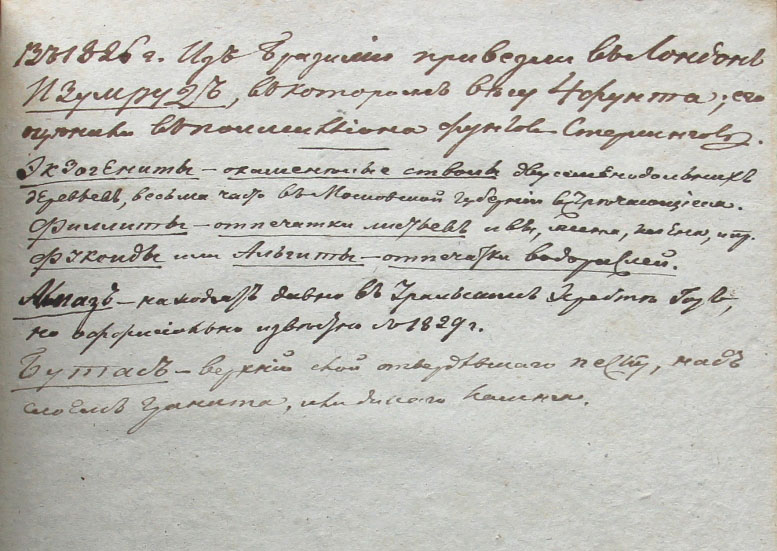 Въ 1826 г. Изъ Бразилiи привезли въ Лондонъ
Изумрудъ, въ которомъ вѣсу 4 фунта; его
оценили въ полмиллiона фунтов Стерлингов.
Экзогениты — окаменѣлые стволы двусѣменодольныхъ
деревьевъ, весьма часто въ Московской Губернiи встрѣчающiеся.
Филлиты — отпечатки листьевъ ивы, клена, и пр.
Фукоиды или Альгиты — отпечатки водорослей.
Алмазъ — находятъ давно въ Уральскомъ Хребтѣ Горъ,
но оффицiально извѣстно съ 1829 г.
Бутасъ — верхнiй слой отвердѣвшаго песку, надъ
слоемъ гранита, или дикаго камня.